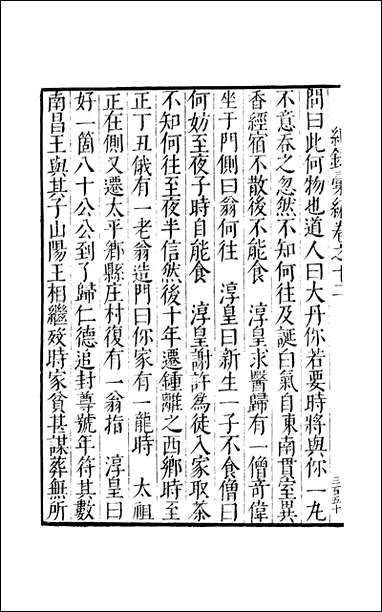 紀錄彙編卷之十二
三百五十
問曰此何物也道人曰大丹你若要時將與你一丸
不意吞之忽然不知何往及誕白氣自東南貫室異
香經宿不散後不能食　淳皇求醫歸有一僧奇偉
坐于門側曰翁何往　淳皇曰新生一子不食僧曰
何妨至夜子時自能食　淳皇謝許為徒入家取茶
不知何往至夜半信然後十年遷鍾離之西鄉時至
正丁丑俄有一老翁造門曰你家有一龍時　太祖
正在側又遷太平鄉縣庄村復有一翁指　淳皇曰
好一箇八十公公到了歸仁德追封尊號年符其數
南昌王與其子山陽王相繼歿時家貧甚謀葬無所